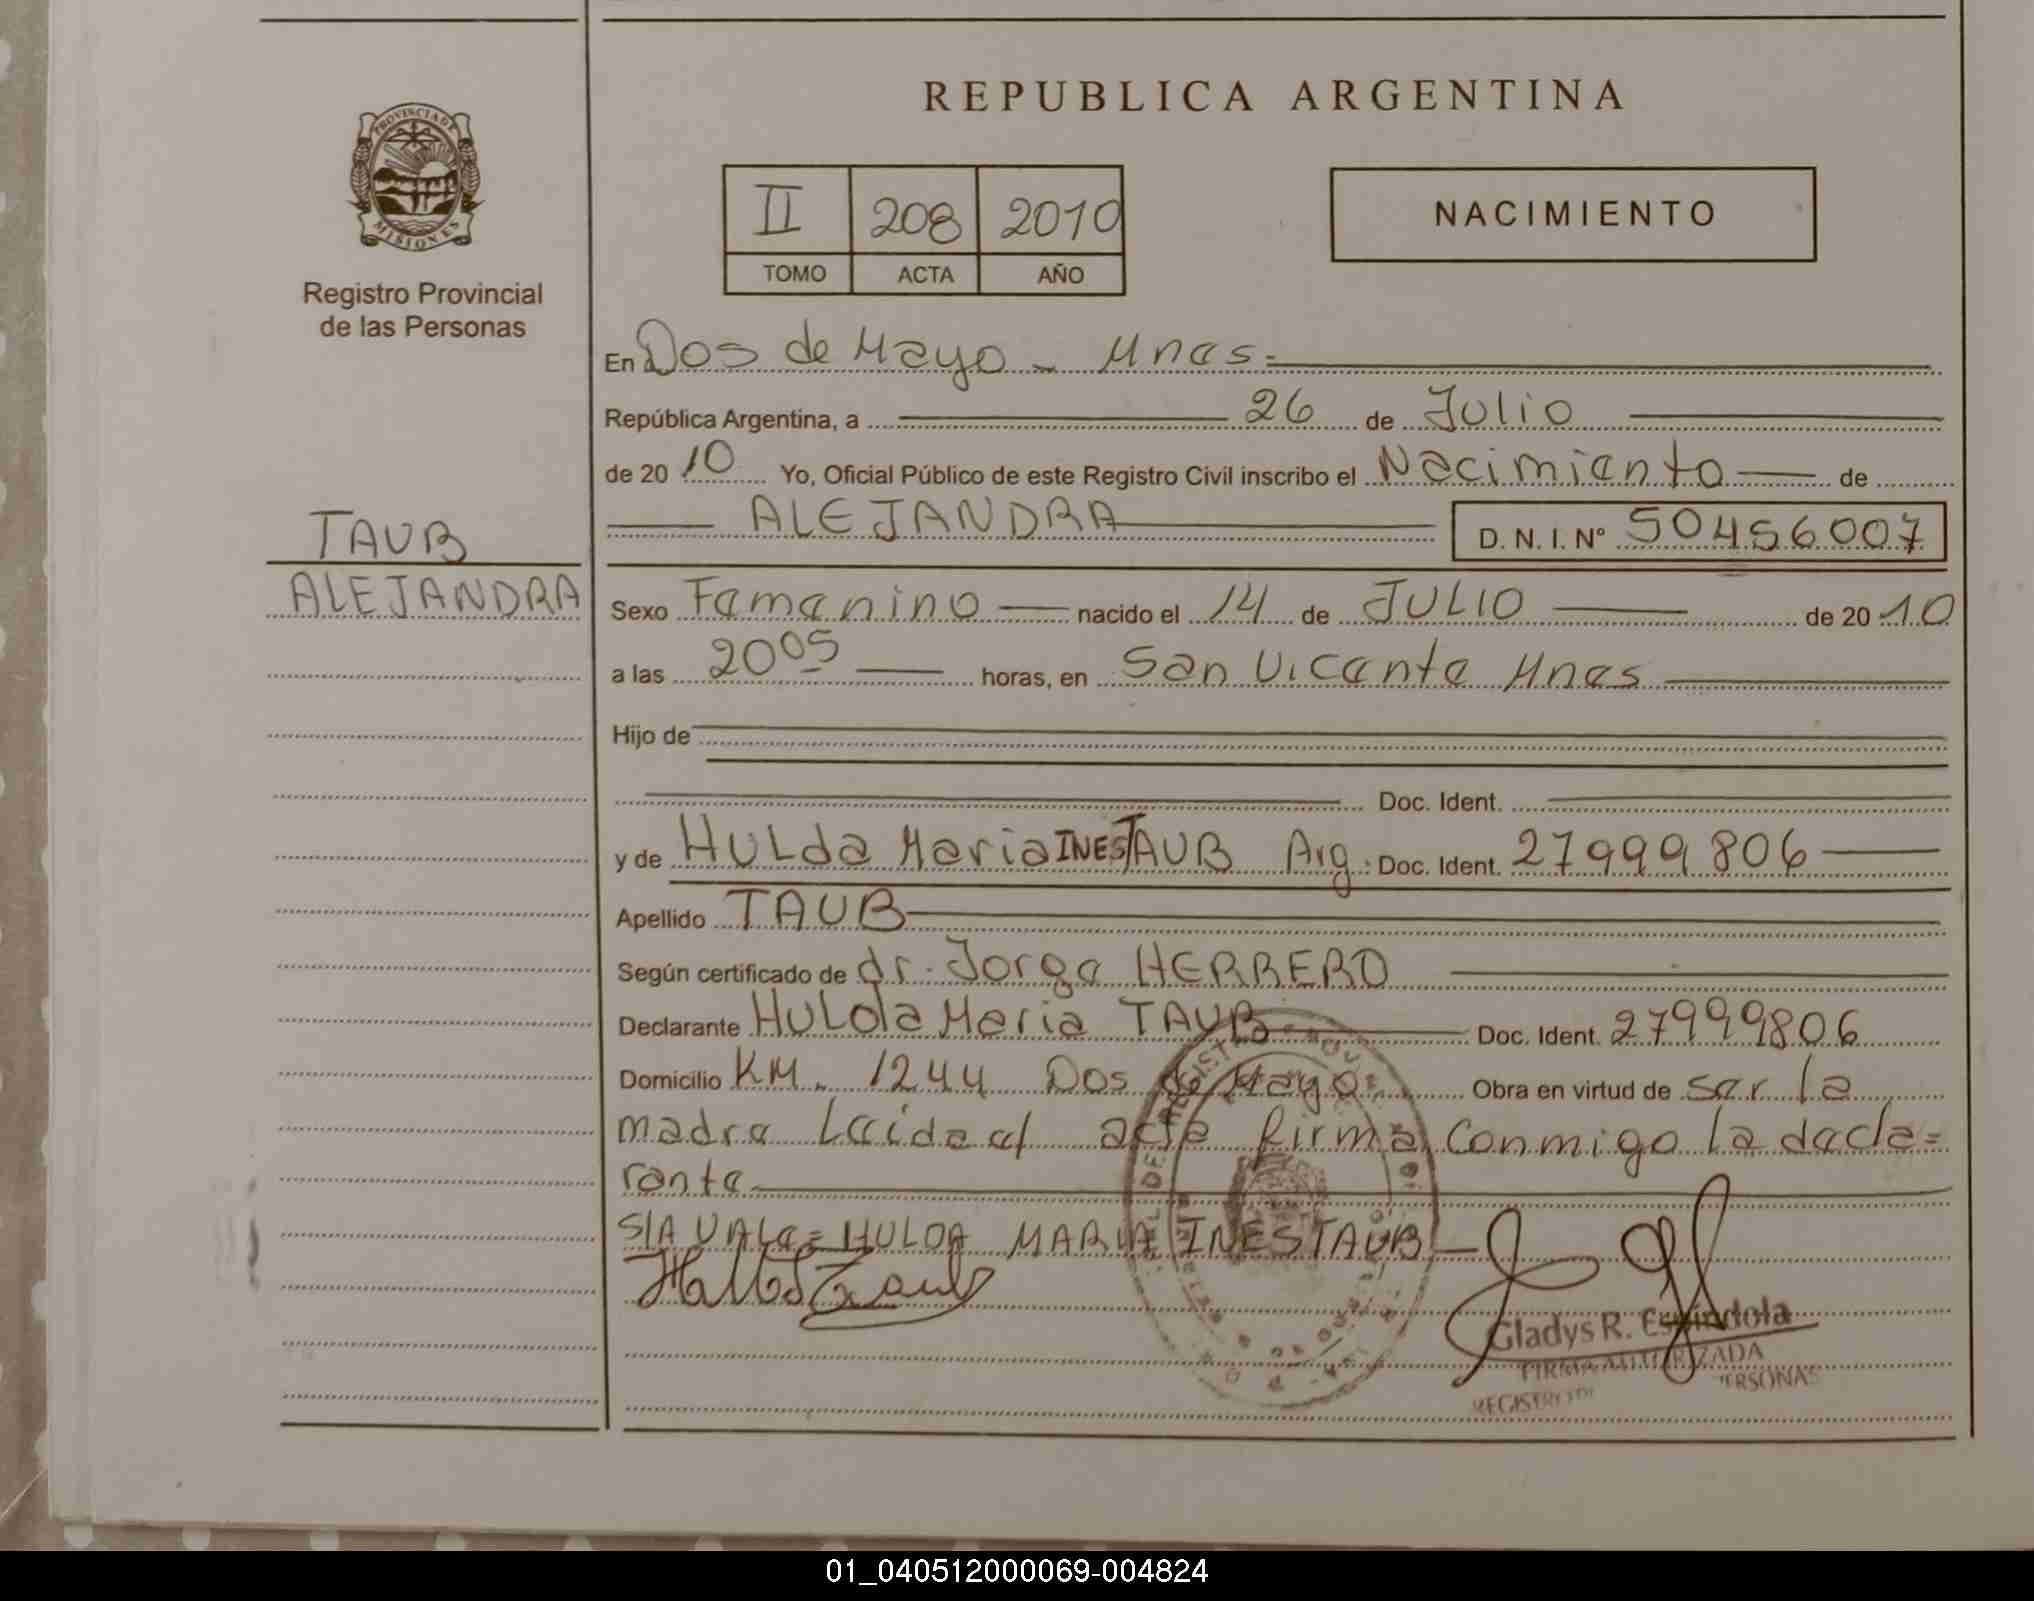 REPUBLICA ARGENTINA
PROVINCIA DE
MISIONES
Registro Provincial
de las Personas
II 208 2010
TOMO ACTA AÑO
NACIMIENTO
En Dos de Mayo - Mnes.=
República Argentina, a 26 de Julio
de 2010 Yo, Oficial Público de este Registro Civil inscribo el Nacimiento de
ALEJANDRA D. N. I. Nº 50456007
TAUB
ALEJANDRA
Sexo Femenino nacido el 14 de JULIO de 2010
a las 20 05 horas, en San Vicente Mnes
Hijo de
Doc. Ident.
y de HULda Maria INES TAUB Arg. Doc. Ident. 27999806
Apellido TAUB
Según certificado de dr. Jorge HERRERO
Declarante HULda Maria TAUB Doc. Ident. 27999806
Domicilio KM. 1244 Dos de Mayo Obra en virtud de ser la
madre Leida el acta firma conmigo la decla=
rante
S/A VALe= HULDA MARIA INES TAUB
Gladys R. Espindola
FIRMA AUTORIZADA
REGISTRO PERSONAS
01_040512000069-004824